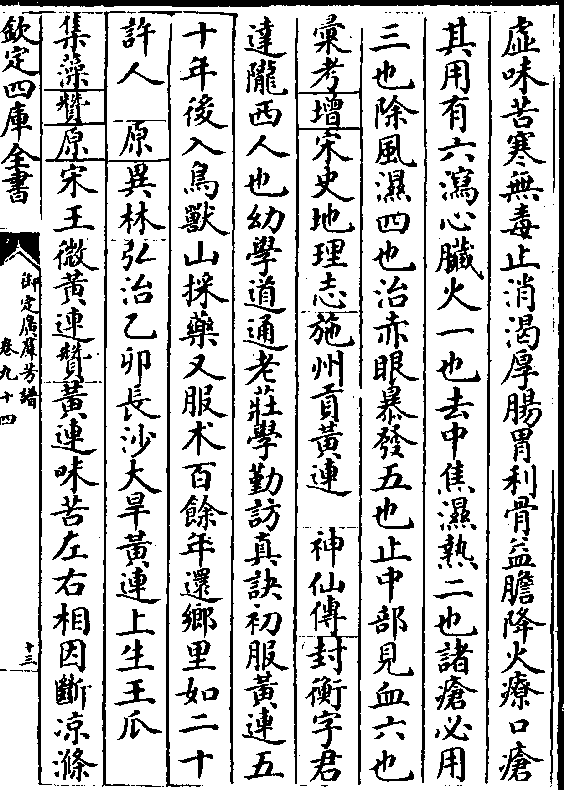 虛味苦寒無毒止消渴厚腸胃利骨益膽降火療口瘡
其用有六瀉心臟火一也去中焦濕熱二也諸瘡必用
三也除風濕四也治赤眼暴發五也止中部見血六也
彚考增宋史地理志施州貢黃連　神仙傳封衡字君
達隴西人也幼學道通老莊學勤訪真訣初服黃連五
十年後入鳥獸山採藥又服朮百餘年還鄉里如二十
許人　原異林弘治乙卯長沙大旱黃連上生王瓜
集藻贊原宋王微黃連贊黃連味苦左右相因斷涼滌
欽定四庫全書
御定廣羣芳譜
卷九十四
十三